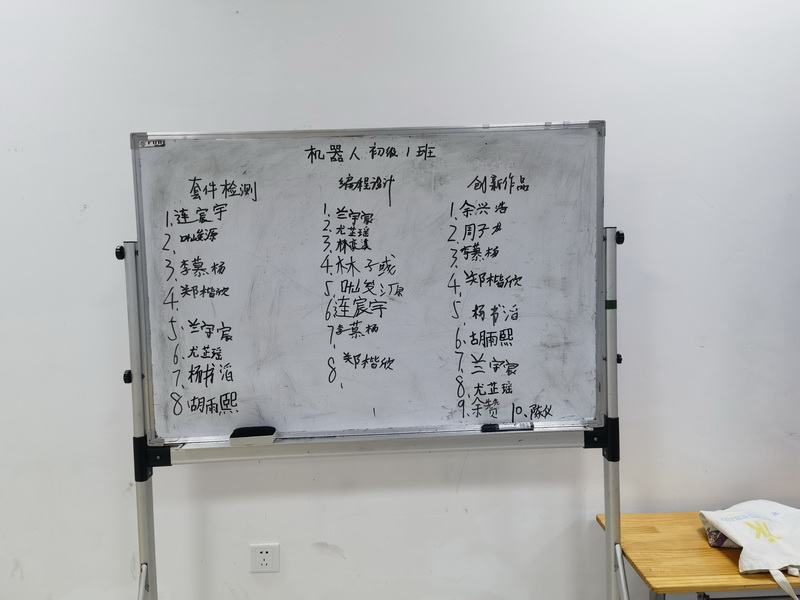 机器人初级1班
套件检测
1.连宸宇
2.
3.李慕杨
4.郑楷欣
5.兰宇宸
6.尤芷瑶
7.杨书滔
8胡雨熙
编程设计
1.兰宇宸
2.尤芷瑶
3.林
4.林子彧
5.
6连宸宇
7.李慕杨
8.郑楷欣
创新作品
1.余兴浩
2.周子
3.李慕杨
4.郑楷欣
5.杨书滔
6.胡雨熙
7.兰宇宸
8.尤芷瑶
9.余赞
10、陈义